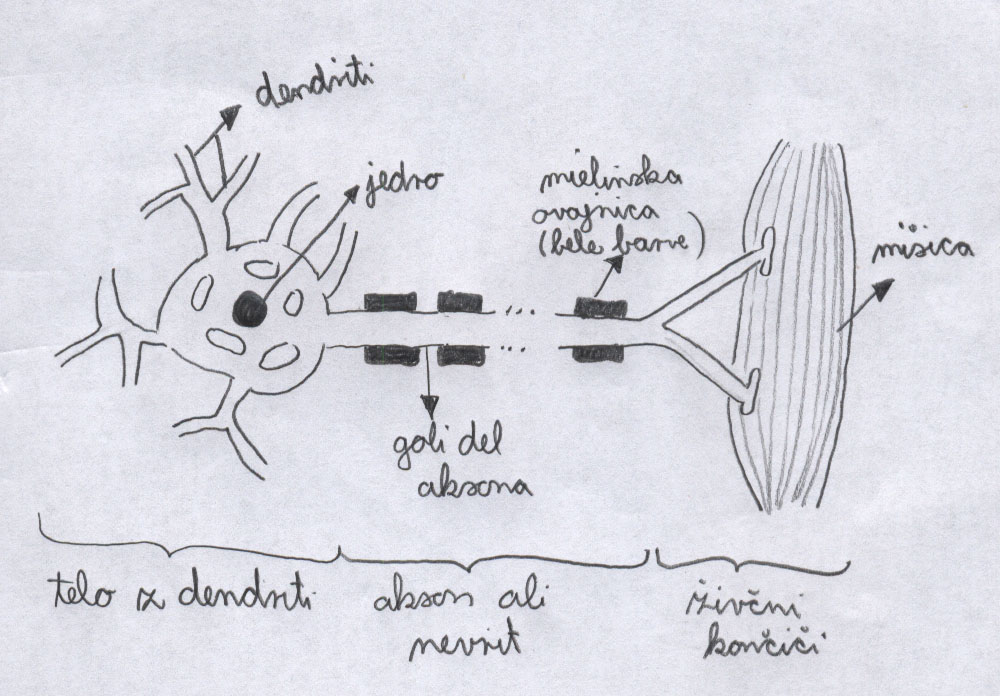 dendriti
jedro
mielinska
ovojnica
(bele barve)
mišica
goli del
aksona
telo z dendriti
akson ali
nevrit
živčni
končiči